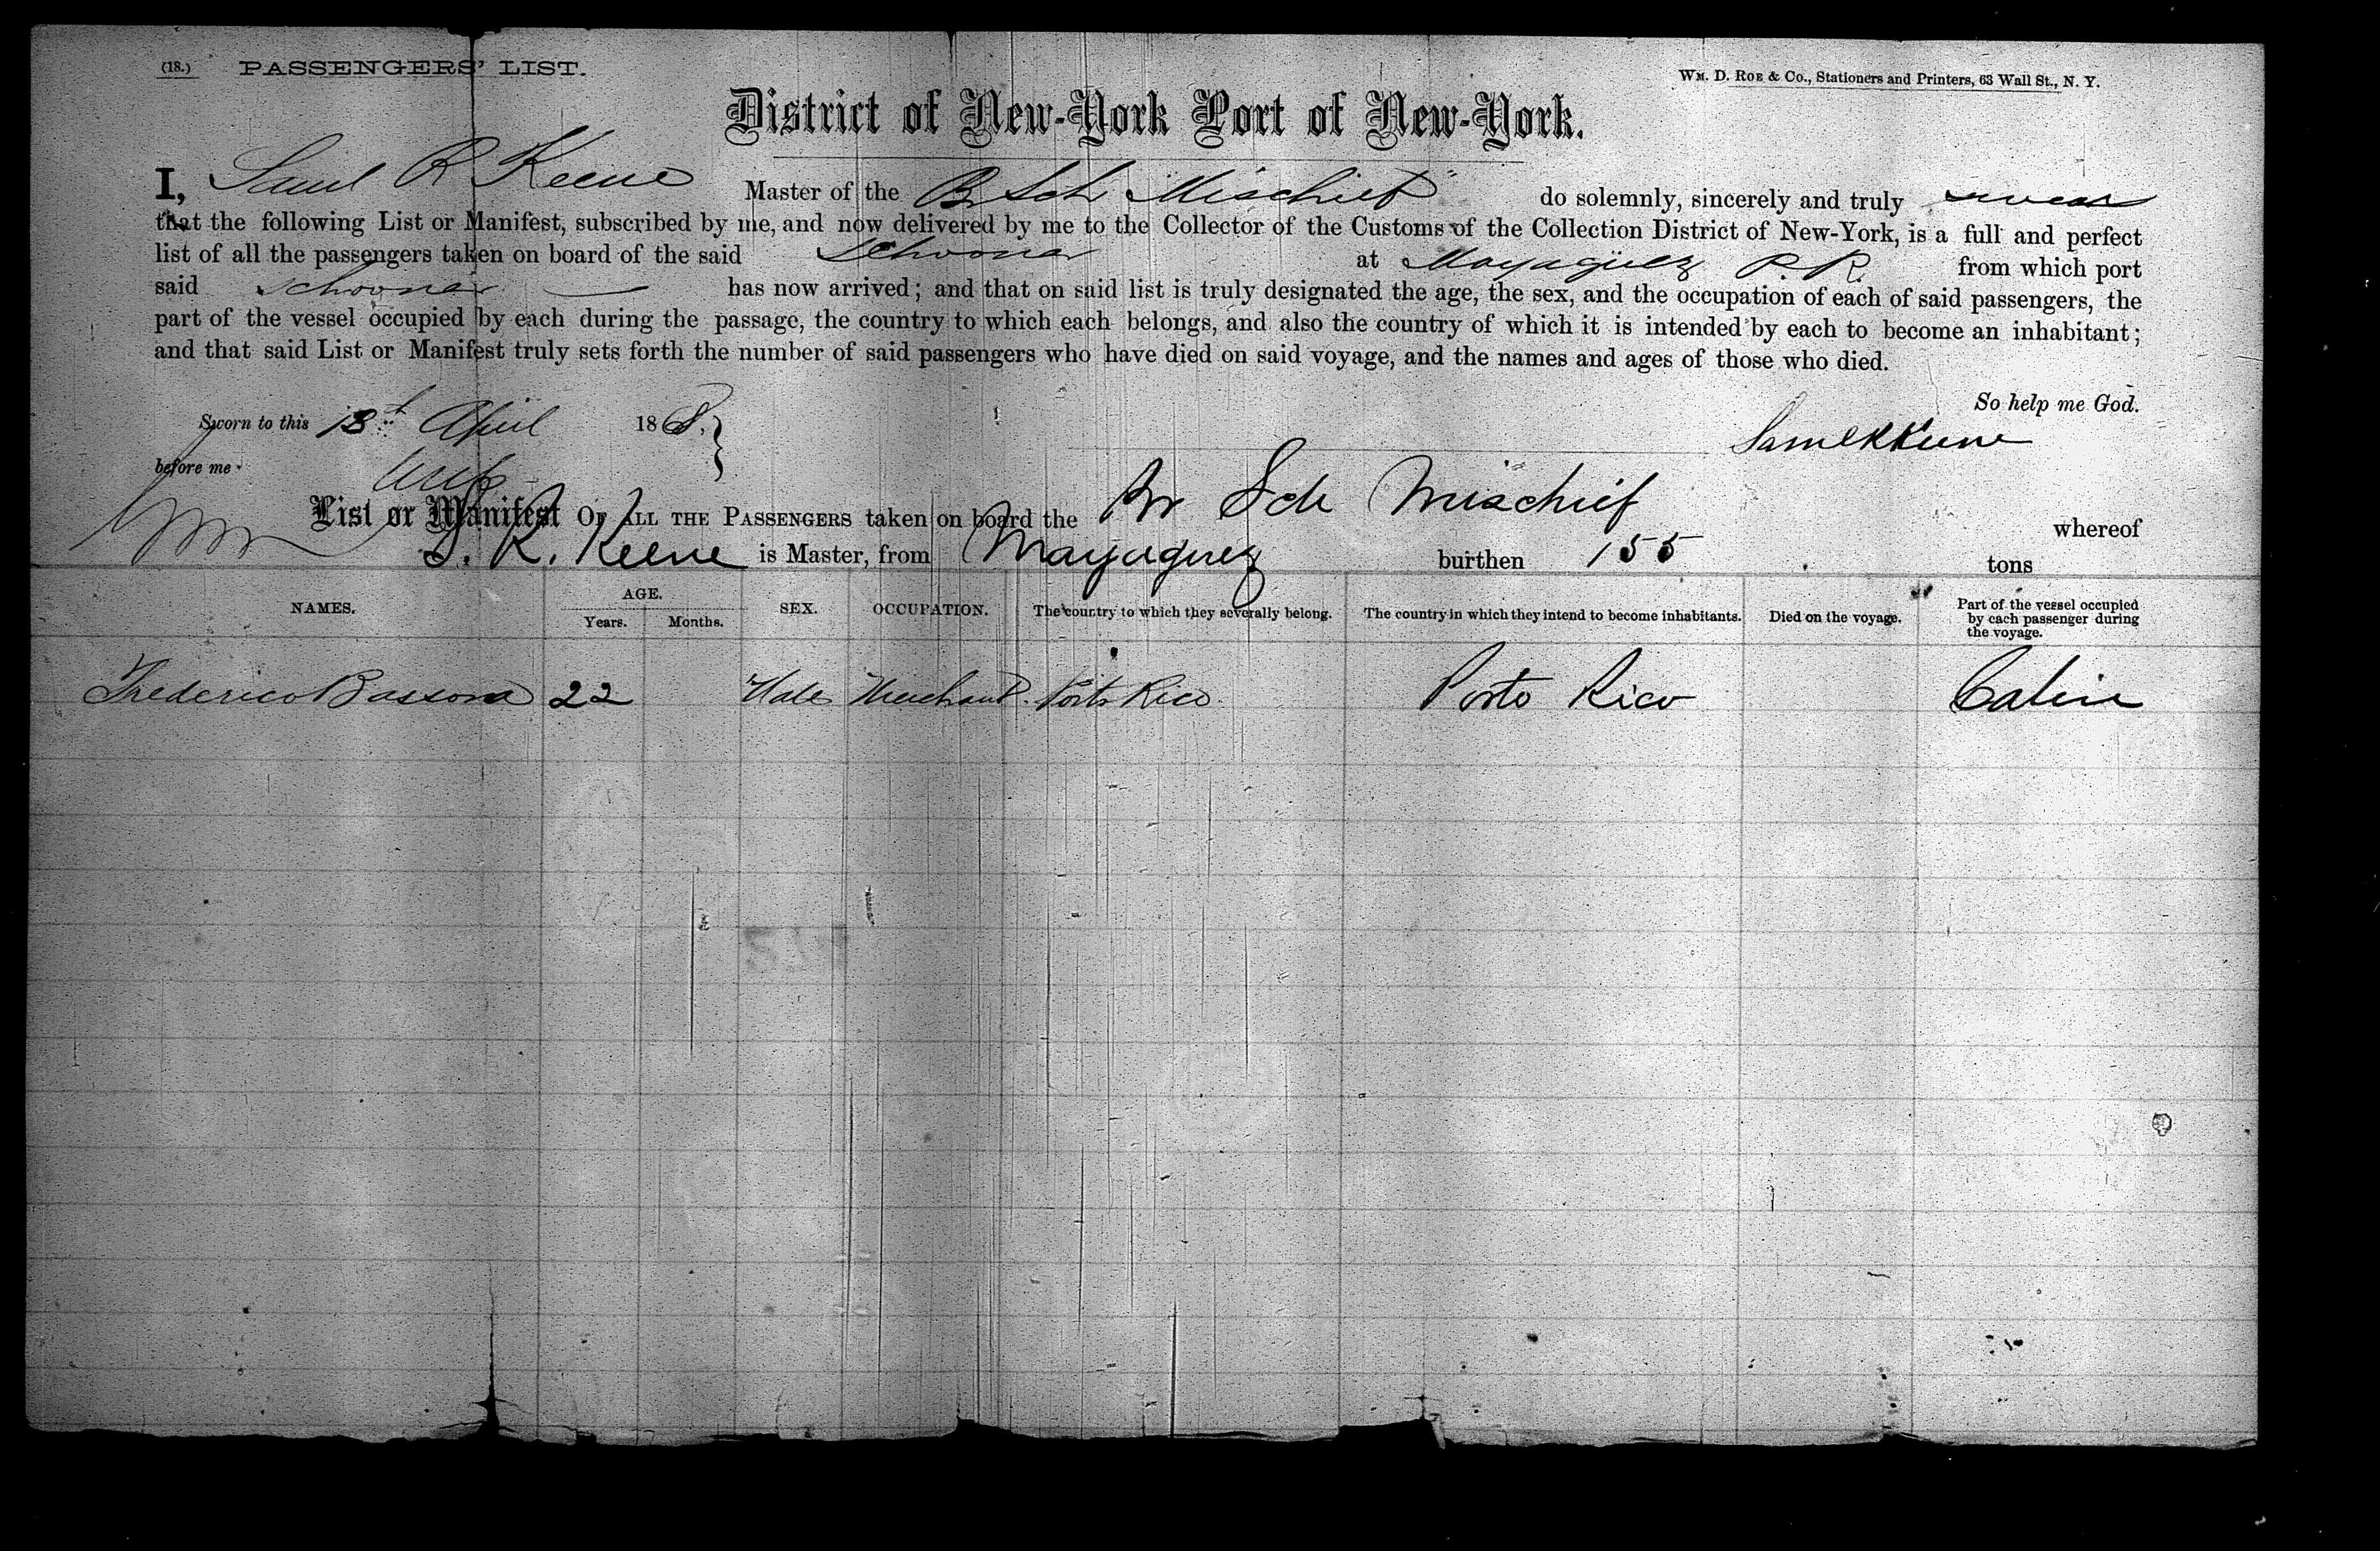 (18.) PASSENGERS' LIST.
WM. D. ROE & Co., Stationers and Printers, 63 Wall St., N. Y.
District of New-York Port of New-York.
I, Saml R Keene Master of the Br Sch "Mischief" do solemnly, sincerely and truly swear
that the following List or Manifest, subscribed by me, and now delivered by me to the Collector of the Customs of the Collection District of New-York, is a full and perfect
list of all the passengers taken on board of the said Schooner at Mayaguez P.R. from which port
said Schooner has now arrived; and that on said list is truly designated the age, the sex, and the occupation of each of said passengers, the
part of the vessel occupied by each during the passage, the country to which each belongs, and also the country of which it is intended by each to become an inhabitant;
and that said List or Manifest truly sets forth the number of said passengers who have died on said voyage, and the names and ages of those who died.
So help me God.
Sworn to this 13th April 1868.
Saml R Keene
before me
List or Manifest OF ALL THE PASSENGERS taken on board the Br Sch Mischief whereof
S. R. Keene is Master, from Mayaguez burthen 155 tons
NAMES. AGE. Years. Months. SEX. OCCUPATION. The country to which they severally belong. The country in which they intend to become inhabitants. Died on the voyage. Part of the vessel occupied by each passenger during the voyage.
Frederico Bassora 22 Male Merchant Porto Rico Porto Rico Cabin